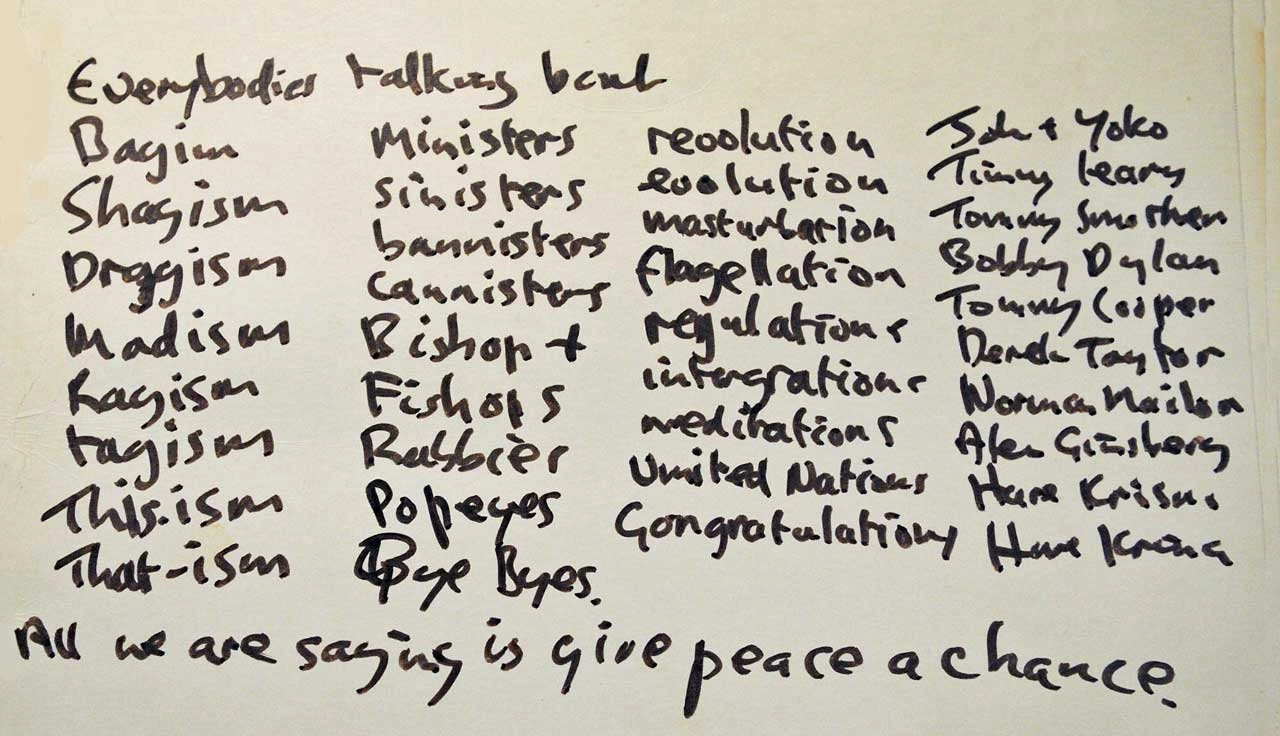 Everybodies talking bout
Bagim
Shagism
Draggism
Madism
Ragism
tagism
This.ism
That-ism
Ministers
sinisters
bannisters
Cannisters
Bishop +
Fishops
Rabbies
Popeyes
Bye Byes.
revolution
evolution
masturbation
flagellation
regulations
intergrations
meditations
United Nations
Congratulations
John + Yoko
Timmy leary
Tommy Smothers
Bobby Dylan
Tommy Cooper
Derek Taylor
Norman Mailer
Alen Ginsberg
Hare Krisna
Hare Krisna
All we are saying is give peace a chance.